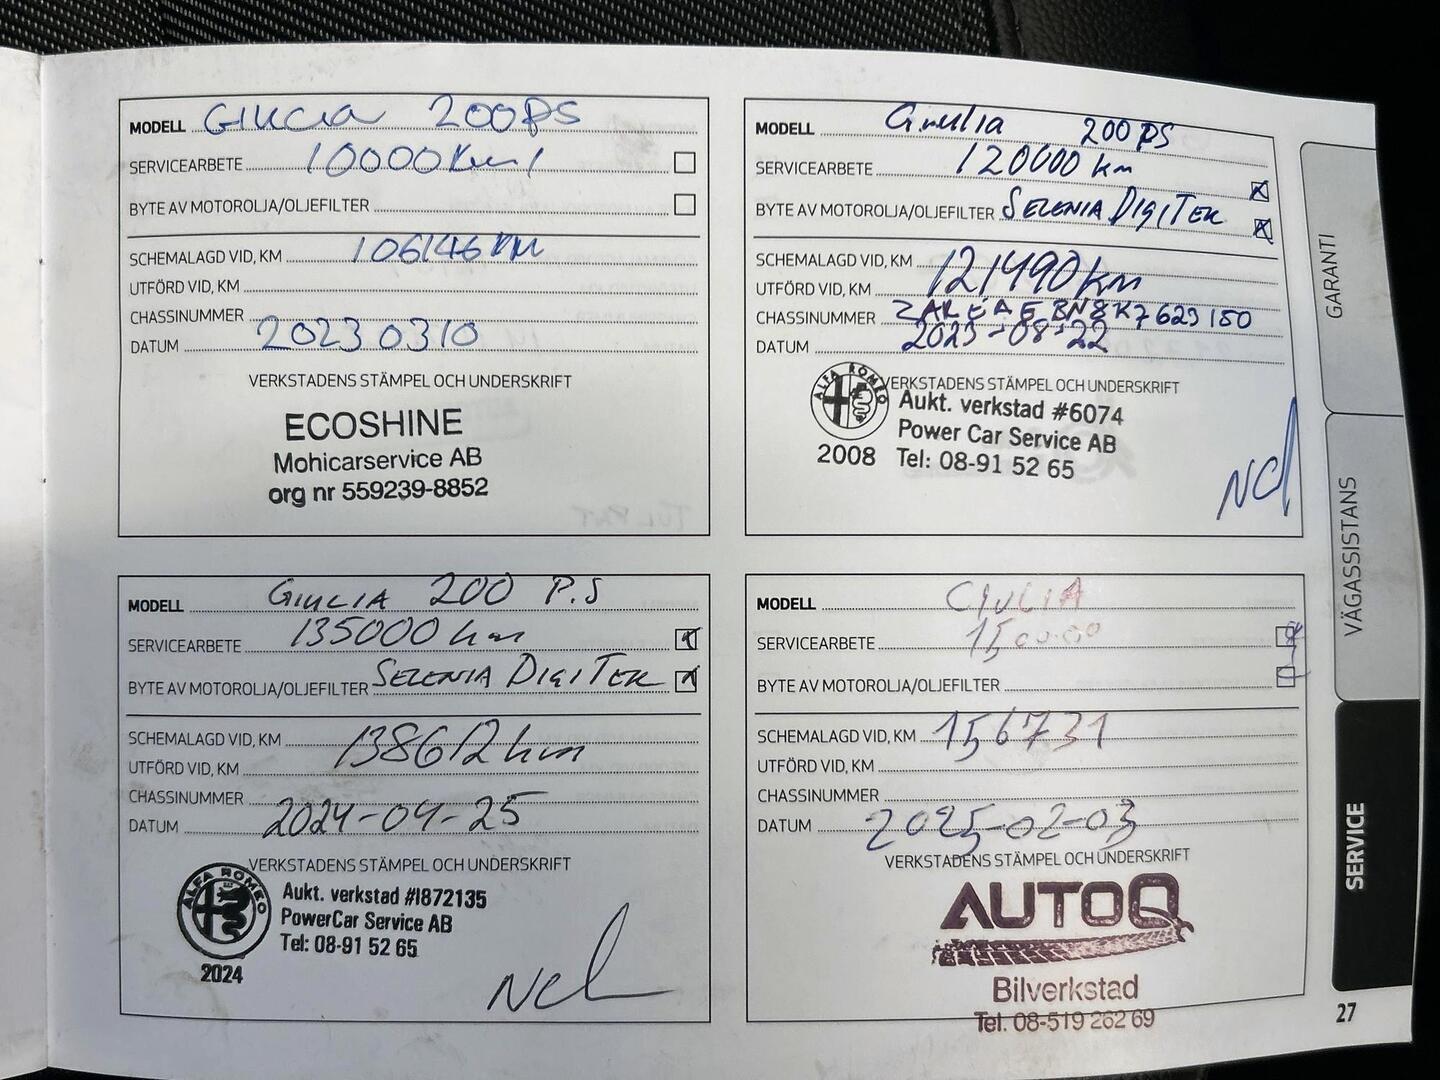 MODELL GIULIA 200PS
SERVICEARBETE
BYTE AV MOTOROLJA/OLJEFILTER
SCHEMALAGD VID, KM 106146 KM
UTFÖRD VID, KM
CHASSINUMMER
DATUM 20230310
VERKSTADENS STÄMPEL OCH UNDERSKRIFT
ECOSHINE
Mohicarservice AB
org nr 559239-8852
MODELL Giulia 200 PS
SERVICEARBETE 120000 km
BYTE AV MOTOROLJA/OLJEFILTER SELENIA DIGITEK
SCHEMALAGD VID, KM
UTFÖRD VID, KM 121490 km
CHASSINUMMER
DATUM 2023-08-22
VERKSTADENS STÄMPEL OCH UNDERSKRIFT
ALFA ROMEO
2008
Aukt. verkstad #6074
Power Car Service AB
Tel: 08-91 52 65
MODELL GIULIA 200 P.S
SERVICEARBETE 135000 km
BYTE AV MOTOROLJA/OLJEFILTER SELENIA DIGITEK
SCHEMALAGD VID, KM
UTFÖRD VID, KM 138612 km
CHASSINUMMER
DATUM 2024-04-25
VERKSTADENS STÄMPEL OCH UNDERSKRIFT
ALFA ROMEO
2024
Aukt. verkstad #I872135
PowerCar Service AB
Tel: 08-91 52 65
MODELL GIULIA
SERVICEARBETE
BYTE AV MOTOROLJA/OLJEFILTER
SCHEMALAGD VID, KM 156731
UTFÖRD VID, KM
CHASSINUMMER
DATUM 2025-02-03
VERKSTADENS STÄMPEL OCH UNDERSKRIFT
AUTOQ
Bilverkstad
Tel. 08-519 262 69
GARANTI
VÄGASSISTANS
SERVICE
27